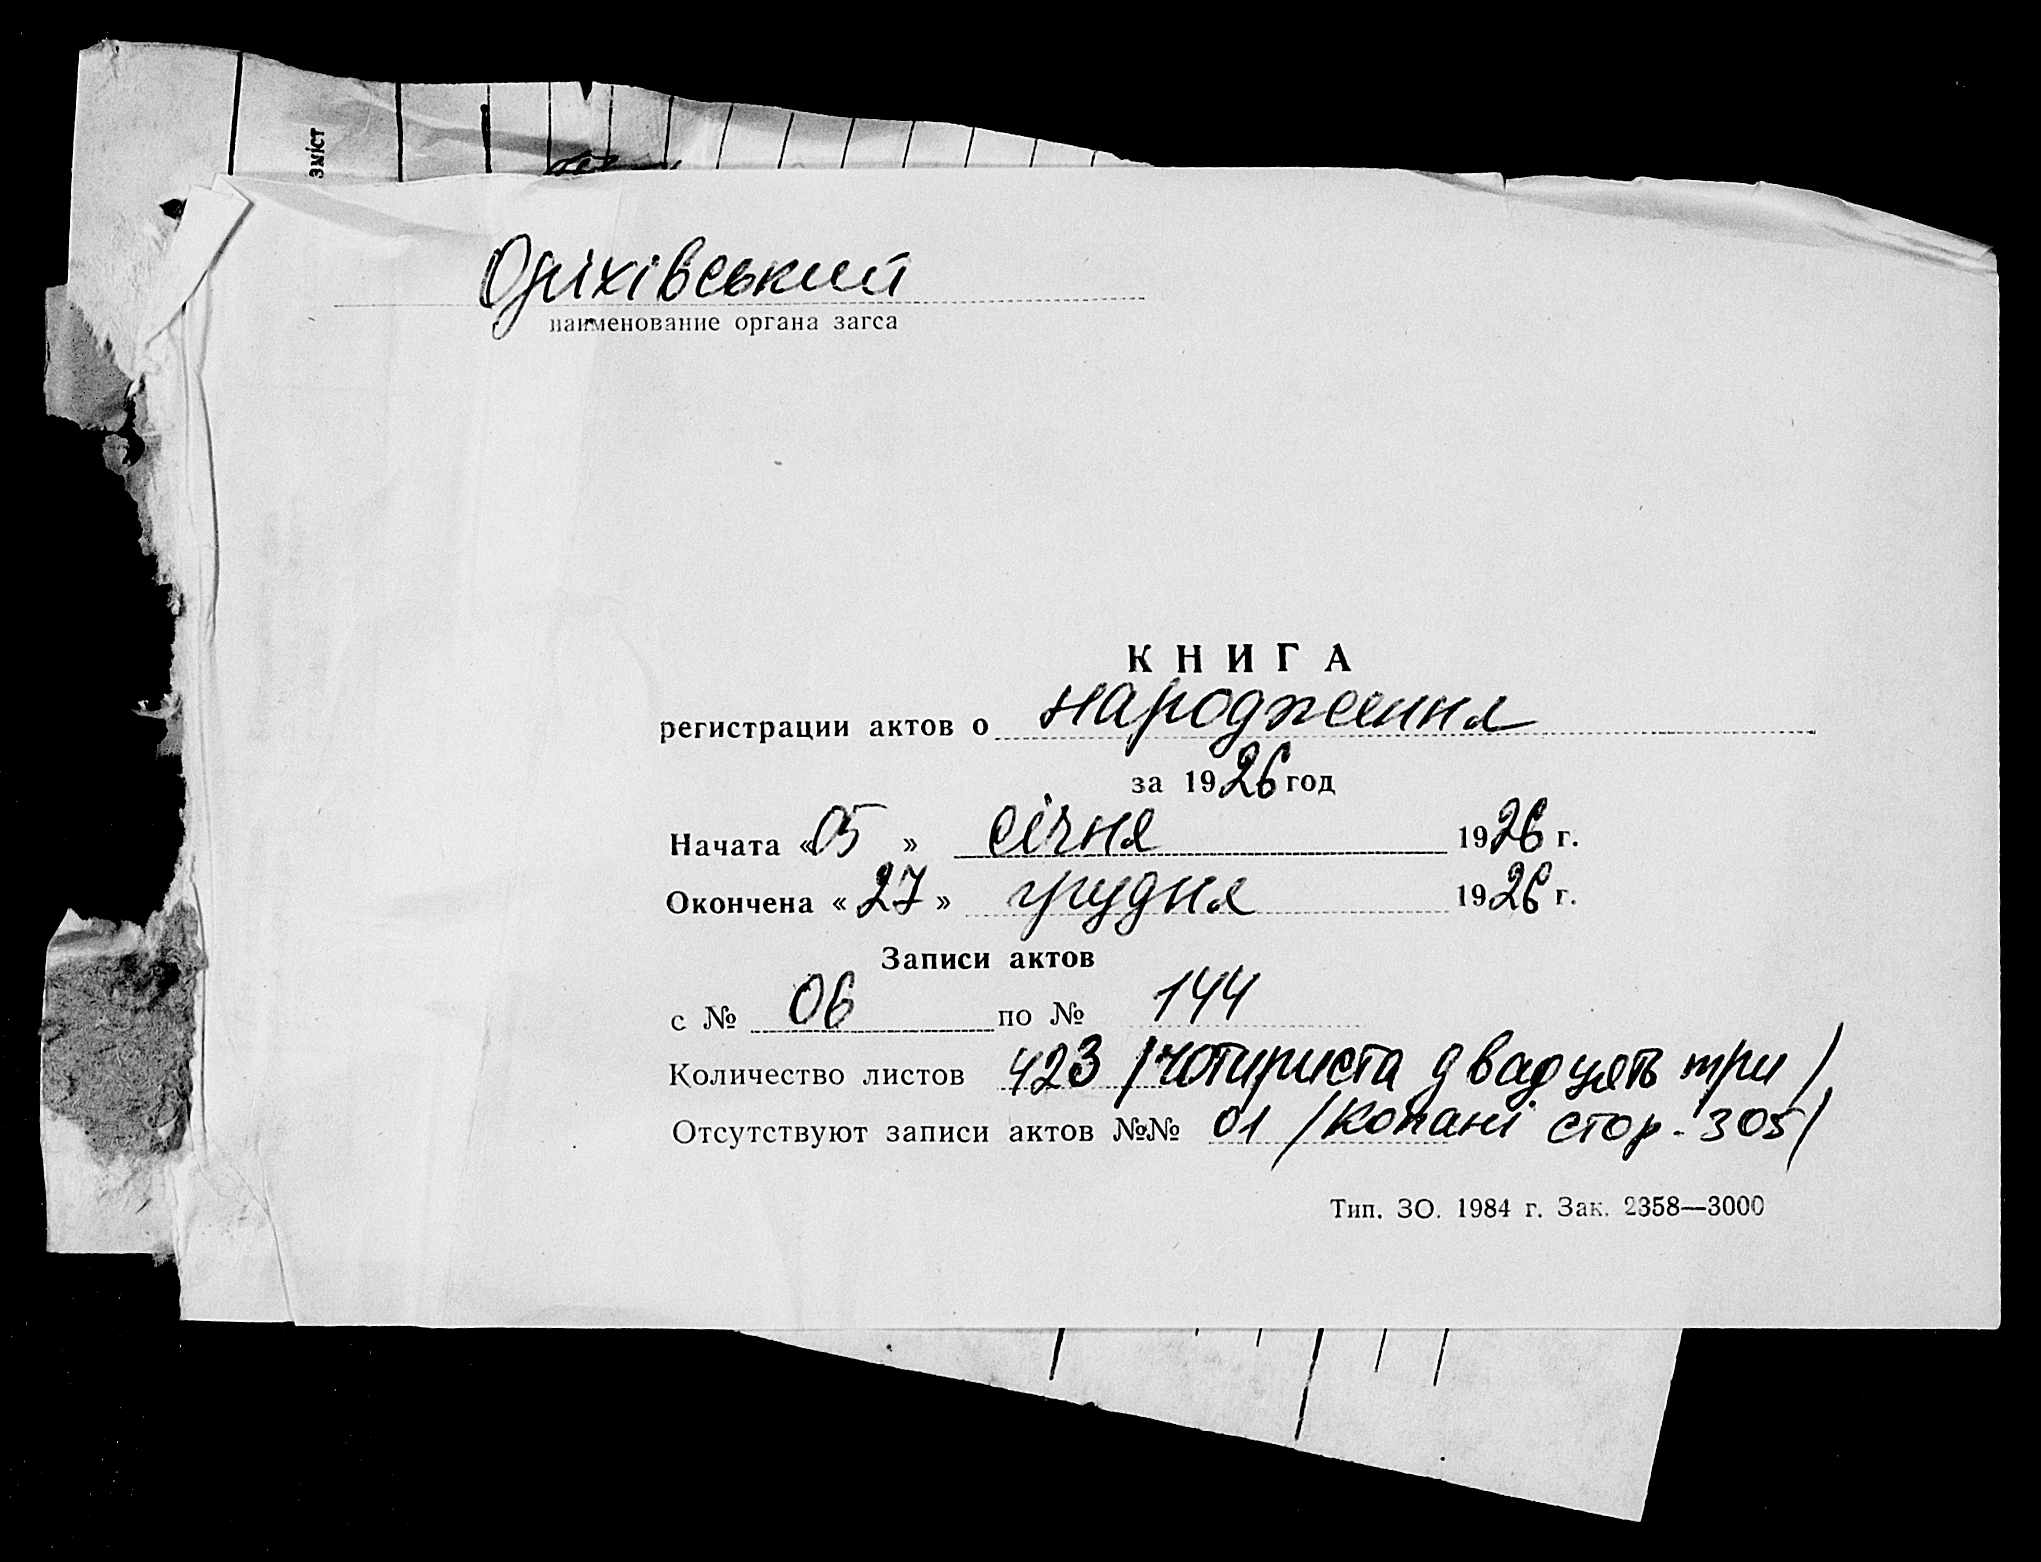 зміст
Оріхівський
наименование органа загса
КНИГА
регистрации актов о народження
за 1926 год
Начата «05» січня 1926 г.
Окончена «27» грудня 1926 г.
Записи актов
с № 06 по № 144
Количество листов 423 /чотириста двадцять три/
Отсутствуют записи актов №№ 01 /Копані стор. 305/
Тип. ЗО. 1984 г. Зак. 2358—3000